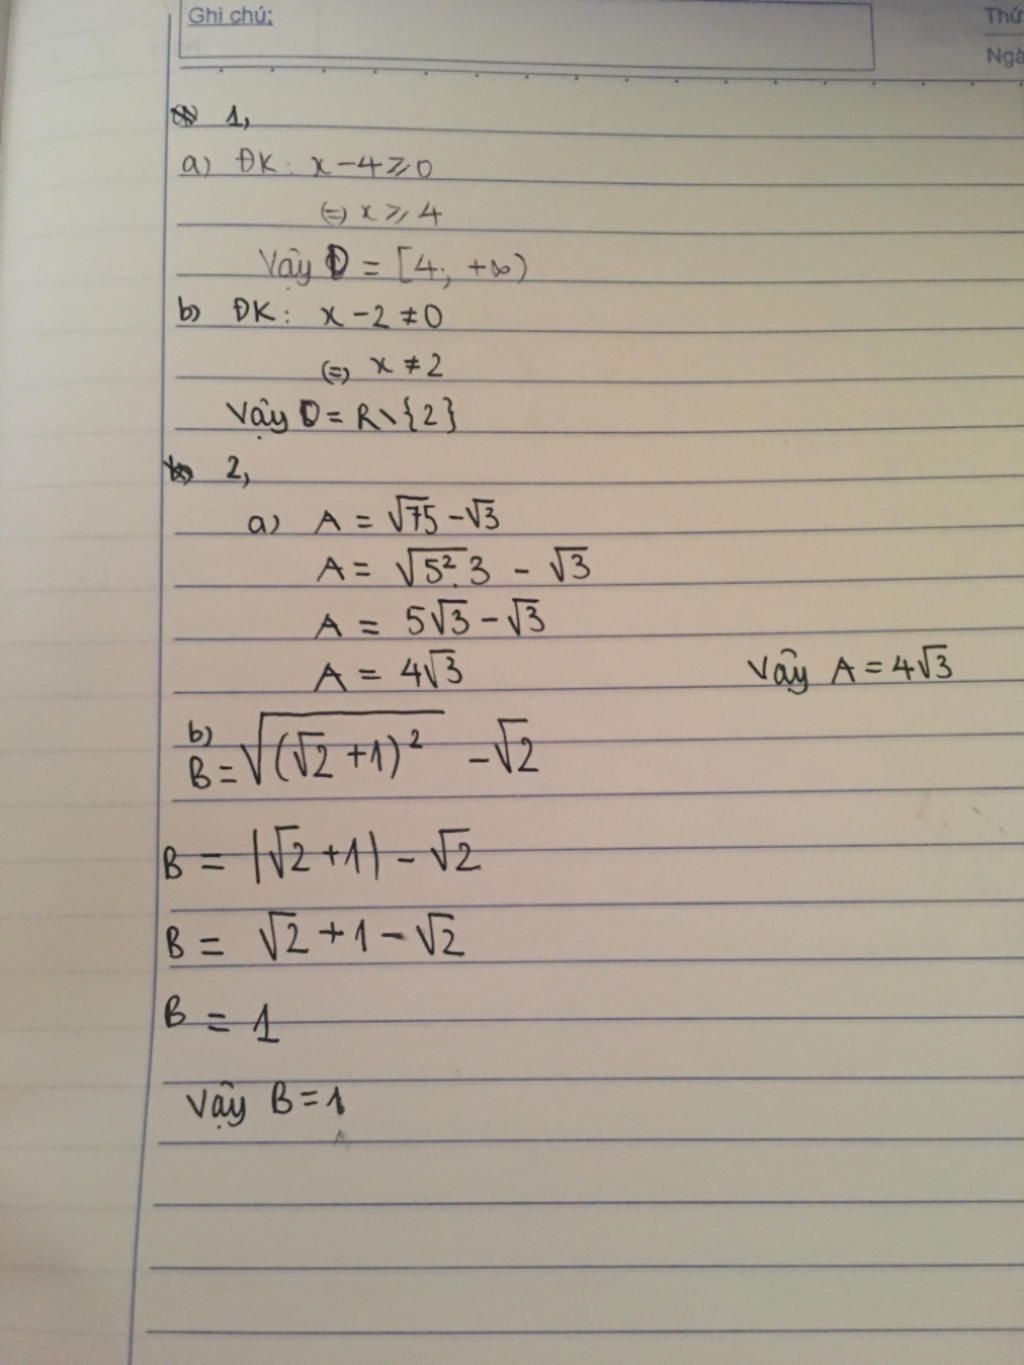 Ghi chú:
Thứ
Ngà
1,
a) ĐK: x - 4 ⩾ 0
(=) x ⩾ 4
Vậy D = [4; +∞)
b) ĐK: x - 2 ≠ 0
(=) x ≠ 2
Vậy D = R\{2}
2,
a) A = √75 - √3
A = √(5².3) - √3
A = 5√3 - √3
A = 4√3 Vậy A = 4√3
b)
B = √((√2 + 1)²) - √2
B = |√2 + 1| - √2
B = √2 + 1 - √2
B = 1
Vậy B = 1